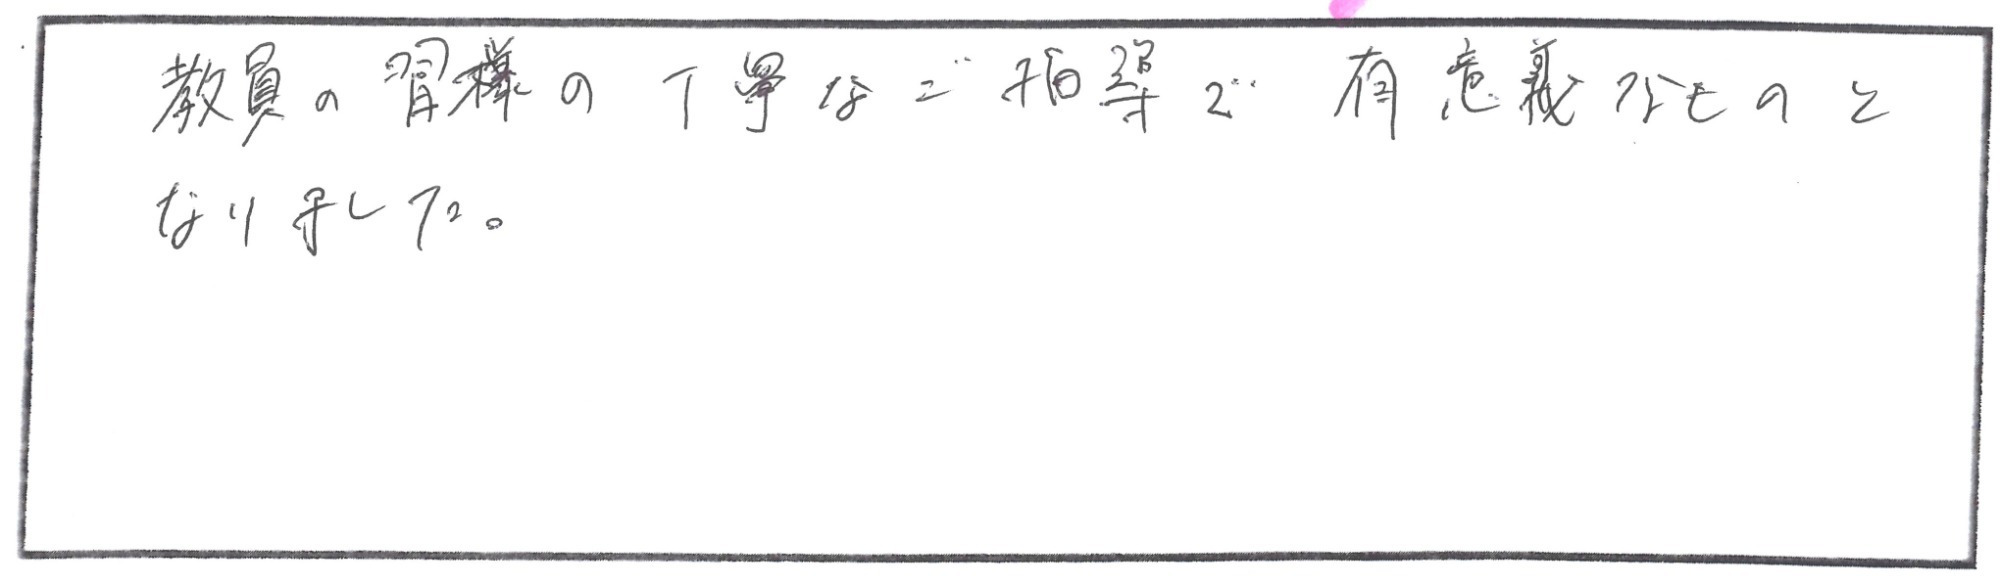 教員の皆様の丁寧なご指導で有意義なものと
なりました。